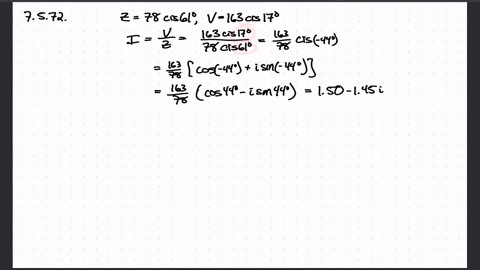 7.5.72. Z = 78 cis 61°, V = 163 cis 17°
I = V/Z = 163 cis 17°/78 cis 61° = 163/78 cis(-44°)
= 163/78 [cos(-44°) + i sin(-44°)]
= 163/78 (cos 44° - i sin 44°) = 1.50 - 1.45 i